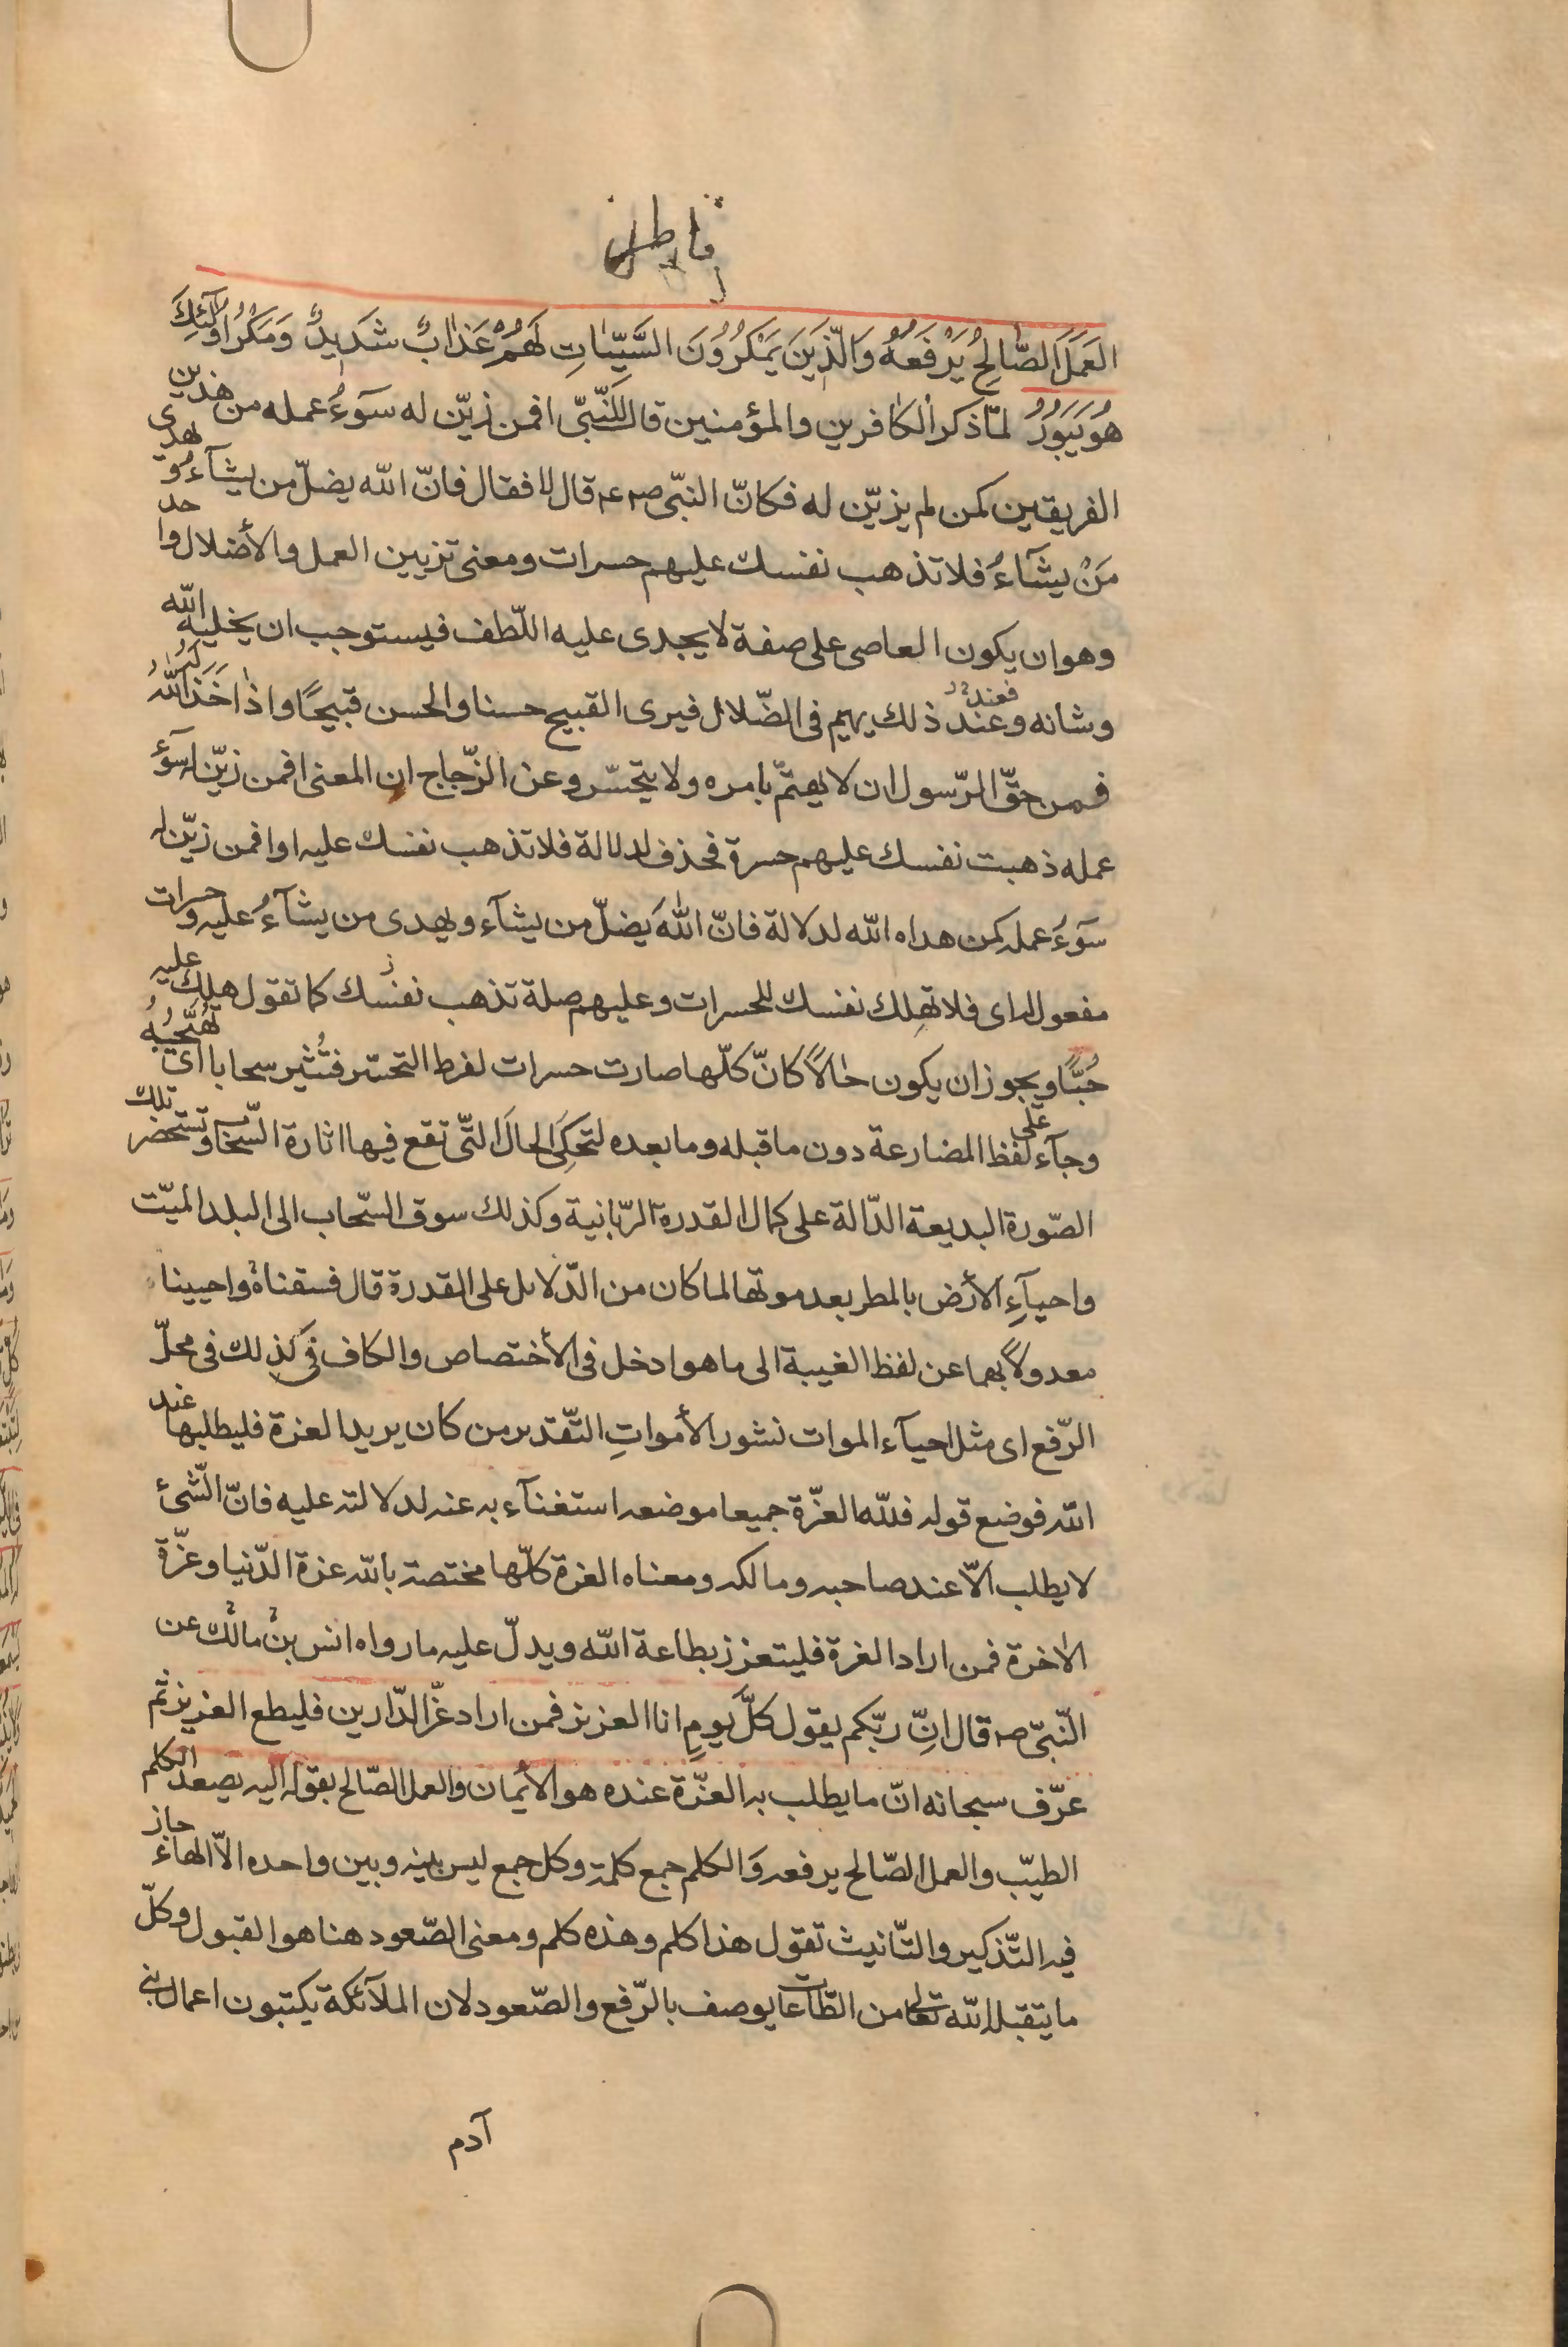 فاطر
العَمَلَ الصّالِحُ يَرْفَعُهُ وَالّذِينَ يَمْكَرُوُنَ السَّيِّاٰتِ لَهُمْ عَذابٌ شَدَيِدٌ وَمَكْرُ اوُلٰٓئِكَ
هُوَيَبُورُ لمّا ذكر الكافرين والمؤمنين قال للنّبّى افمن زيّن له سوٓءُ عمله من هذين
الفريقين كمن لم يزيّن له فكانّ النبّى صم قال لا فقال فانّ الله يضلّ من يشآءُ و يهدى
مَنْ يشآءُ فلا تذهب نفسك عليهم حسرات ومعنى تزيين العمل والأضلال واحد
وهو ان يكون العاصى على صفة لا يجدى عليه اللّطف فيستوجب ان يخليه الله
وشانه وعند فعند ذلك يهيم فى الضّلال فيرى القبيح حسنا والحسن قبيحًا واذا خَذَلَهُ اللّٰهُ
فمن حقّ الرّسول ان لا يهتمّ بامره ولا يتحسّر وعن الزّجاج ان المعنى افمن زيّن له سوٓءُ
عمله ذهبت نفسك عليهم حسرة فحذف لدلالة فلا تذهب نفسك عليه او افمن زيّن له
سوٓءُ عمله كمن هداه الله لدلالة فانّ اللهَ يضلّ من يشآء ويهدى من يشآءُ عليه و حسرات
مفعول له اى فلا تهلِك نفسك للحسرات وعليهم صلة تذهب نفسك كما تقول هلك عليه
حُبًّا ويجوز ان يكون حالاً كانّ كلّها صارت حسرات لفرط التحسّر فتُثير سحابا اى تُهَيِّجُهُ
وجآء على لفظ المضارعة دون ما قبله وما بعده لتحكِىَ الحالَ التّى تقع فيها اثارة السّحاب وتستحضر تلك
الصّورة البديعة الدّالة على كمال القدرة الرّبّانية وكذلك سوق السّحاب الى البلد الميّت
واحيآءِ الأرض بالمطر بعد موتها لما كان من الدّلايل على القدرة قال فسقناهُ واحيينا
معدولاً بهما عن لفظ الغيبة الى ما هو ادخل فى الأختصاص والكاف فى كذلك فى محلّ
الرّفع اى مثل احيآء الموات نشور الأمواتِ التّقدير من كان يريد العزة فليطلبها عند
الله فوضع قوله فلله العزّة جميعا موضعه استغنآء به عنه لدلالته عليه فانّ الشّئ
لا يطلب الاّ عند صاحبه ومالكه ومعناه العزة كلّها مختصة بالله عزة الدّنيا وعزّة
الاخرة فمن اراد العزة فليتعزز بطاعة الله ويدلّ عليه ما رواه انس بن مالك عن
النّبىّ صم قال انّ ربّكم يقول كلّ يومٍ انا العزيز فمن اراد عزّ الدّارين فليطع العزيز ثم
عرّف سبحانه انّ ما يطلب به العزّة عنده هو الأيمان والعمل الصّالح بقوله اليه يصعد الكلم
الطيّب والعمل الصّالح يرفعه وَالكلم جمع كلمة وكل جمع ليس بينه وبين واحده الاّ الهاءُ جاز
فيه التّذكير والتّانيث تقول هذا كلم وهذه كلم ومعنى الصّعود هنا هو القبول وكلّ
ما يتقبله الله تعالى من الطّاعات يوصف بالرّفع والصّعود لان الملآئكة يكتبون اعمال بنى
آدم